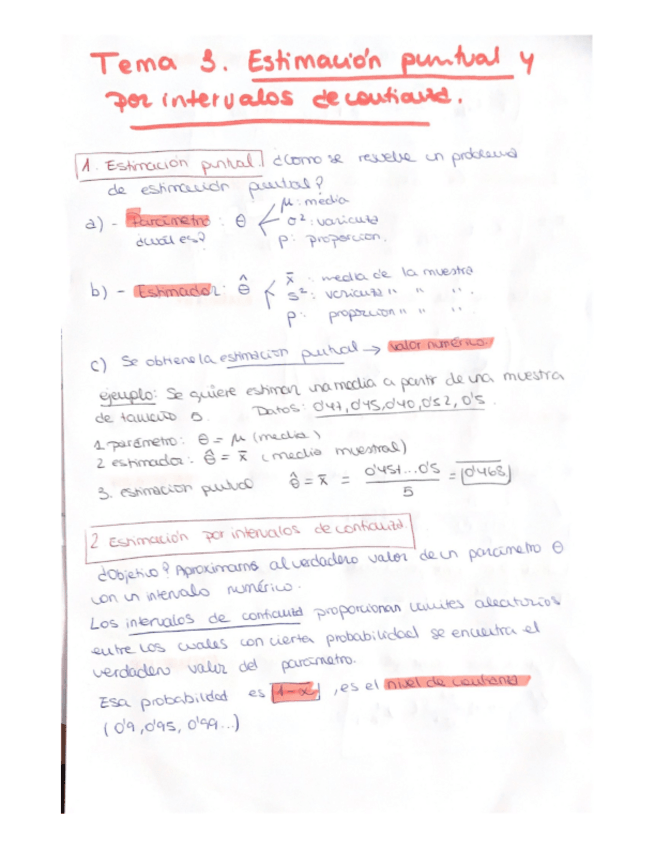 Tema 3. Estimación puntual y
por intervalos de confianza.
1. Estimación puntual ¿Cómo se resuelve un problema
de estimación puntual?
a) - Parámetro : θ
¿cuál es?
μ: media
σ²: varianza
p: proporcion.
b) - Estimador: θ̂
x̄ : media de la muestra
s²: varianza " " "
p: proporcion " " "
c) Se obtiene la estimación puntual → valor numérico.
ejemplo: Se quiere estimar una media a partir de una muestra
de tamaño 5. Datos: 0'47, 0'45, 0'40, 0'52, 0'5.
1. parámetro: θ = μ (media)
2 estimador: θ̂ = x̄ (media muestral)
3. estimacion puntual θ̂ = x̄ = 0'45+...0'5 / 5 = 0'468
2 Estimación por intervalos de confianza.
¿Objetivo? Aproximarnos al verdadero valor de un parámetro θ
con un intervalo numérico.
Los intervalos de confianza proporcionan límites aleatorios
entre los cuales con cierta probabilidad se encuentra el
verdadero valor del parámetro.
Esa probabilidad es 1-α, es el nivel de confianza
(0'9, 0'95, 0'99...)